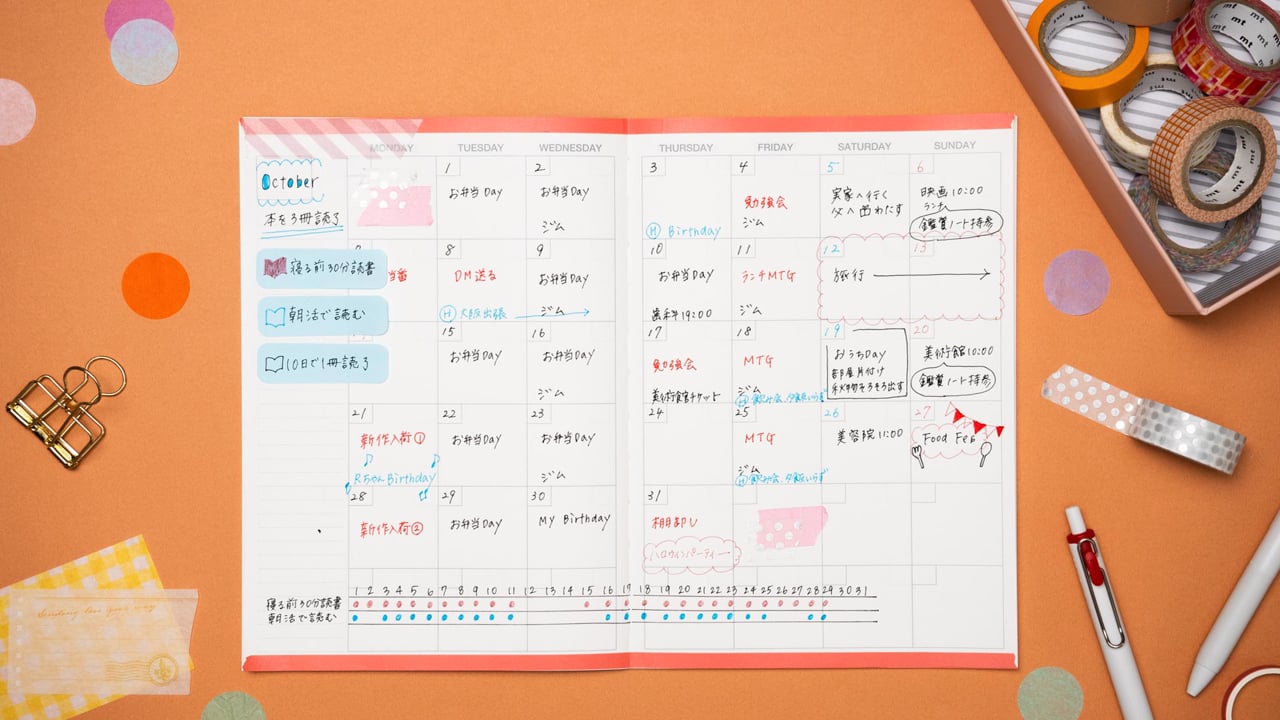 MONDAY
TUESDAY
WEDNESDAY
THURSDAY
FRIDAY
SATURDAY
SUNDAY
October
本を3冊読了
寝る前30分読書
朝活で読む
10日で1冊読了
1
お弁当Day
2
お弁当Day
ジム
3
Ⓗ Birthday
4
勉強会
ジム
5
実家へ行く
6
映画10:00
ランチ
鑑賞ノート持参
8
DM送る
Ⓗ 大阪出張
9
お弁当Day
ジム
10
お弁当Day
歯科19:00
11
ランチMTG
ジム
12
旅行
13
15
お弁当Day
16
お弁当Day
ジム
17
勉強会
美術館チケット
18
MTG
ジム
Ⓗ飲み会、夕飯いらず
19
おうちDAY
部屋片付け
秋物そろそろ出す
20
美術館10:00
鑑賞ノート持参
21
新作入荷①
Birthday
22
お弁当Day
23
お弁当Day
ジム
24
25
MTG
ジム
Ⓗ飲み会、夕飯いらず
26
美容院11:00
27
Food Fes
28
新作入荷②
29
お弁当Day
30
My Birthday
31
棚卸し
ハロウィンパーティー
1 2 3 4 5 6 7 8 9 10 11 12 13 14 15 16 17 18 19 20 21 22 23 24 25 26 27 28 29 30 31
寝る前30分読書
朝活で読む
mt
mt
mt
mt
Sending love your way